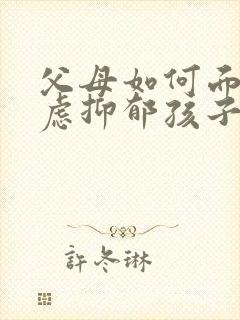 父母如何而
虑抑郁孩子
許冬琳